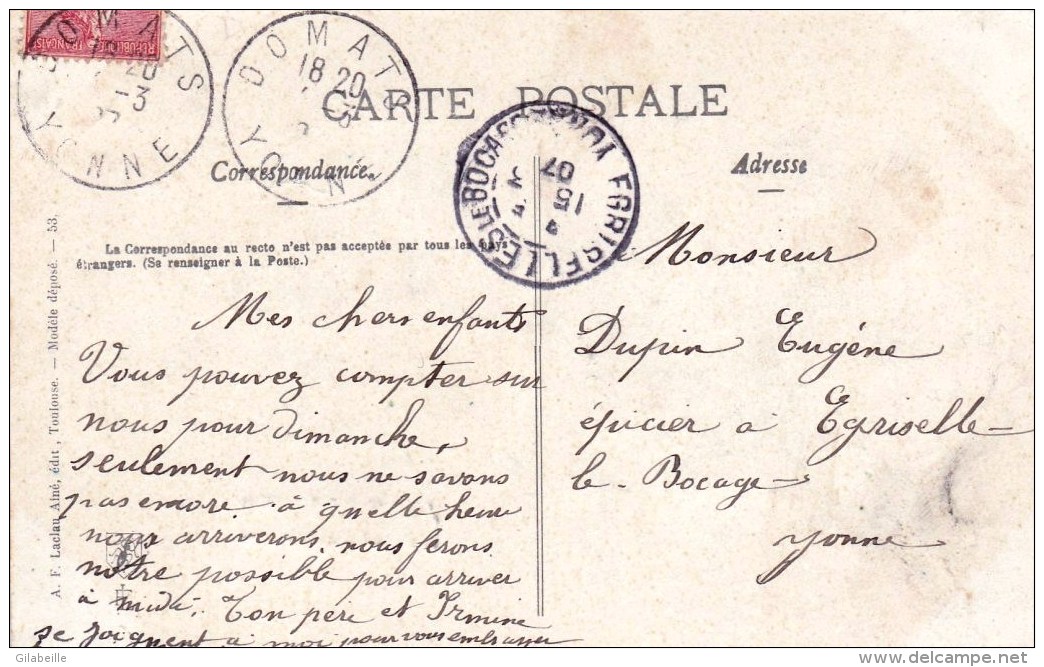 RÉPUBLIQUE FRANÇAISE
DOMATS
18 20
YONNE
DOMATS
18 20
YONNE
CARTE POSTALE
EGRISELLES LE BOCAGE YONNE
15
07
Correspondance
Adresse
La Correspondance au recto n'est pas acceptée par tous les pays
étrangers. (Se renseigner à la Poste.)
A. F. Laclau Aîné, édit., Toulouse. — Modèle déposé. — 53.
Mes chers enfants
Vous pouvez compter sur
nous pour dimanche,
seulement nous ne savons
pas encore à quelle heure
nous arriverons, nous ferons
notre possible pour arriver
à midi. Ton père et Irmine
se joignent à moi pour vous embrasser
Monsieur
Dupin Eugéne
épicier à Egriselle-
le-Bocage
Yonne
© Gilabeille
http://www.delcampe.net